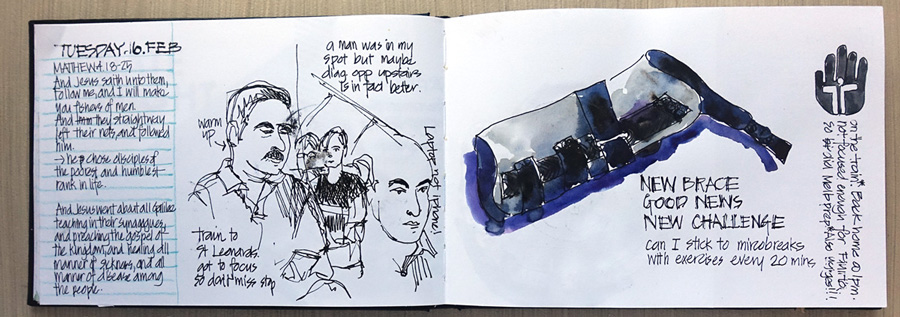 TUESDAY.16.FEB
MATTHEW.4.18-25
And Jesus saith unto them,
Follow me, and I will make
you fishers of men.
And they straightway
left their nets, and followed
him.
→ he chose disciples of
the poorest and humblest
rank in life.
And Jesus went about all Galilee
teaching in their synagogues,
and preaching the gospel of
the kingdom, and healing all
manner of sickness, and all
manner of disease among
the people.
warm
up
a man was in my
spot but maybe
diag opp upstairs
is in fact better.
Laptop not iphone!
train to
St Leonards.
got to focus
so don't miss stop
NEW BRACE
GOOD NEWS
NEW CHALLENGE
can I stick to microbreaks
with exercises every 20 mins
on the train Back home @ 1pm.
not focused enough for
so